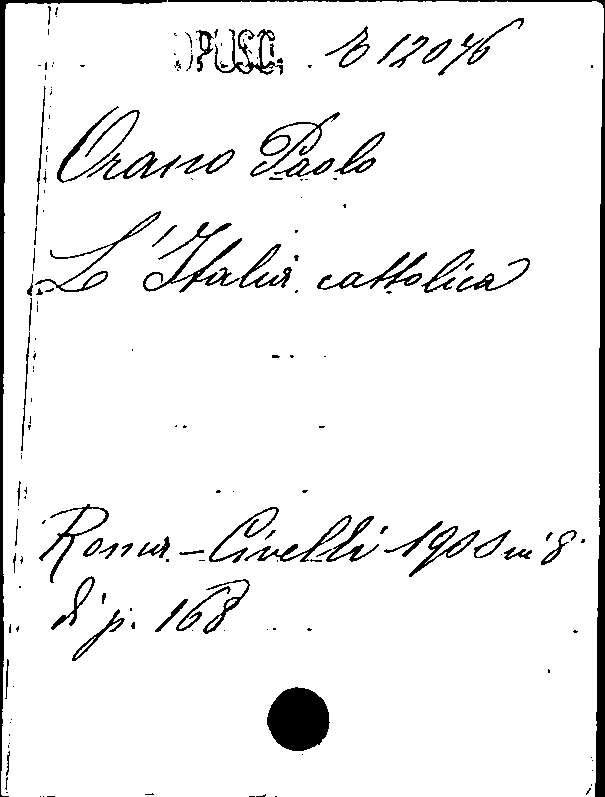 OPUSC. B 12076
Orano Paolo
L'Italia cattolica
Roma - Civelli 1900 in 8°
di p. 168